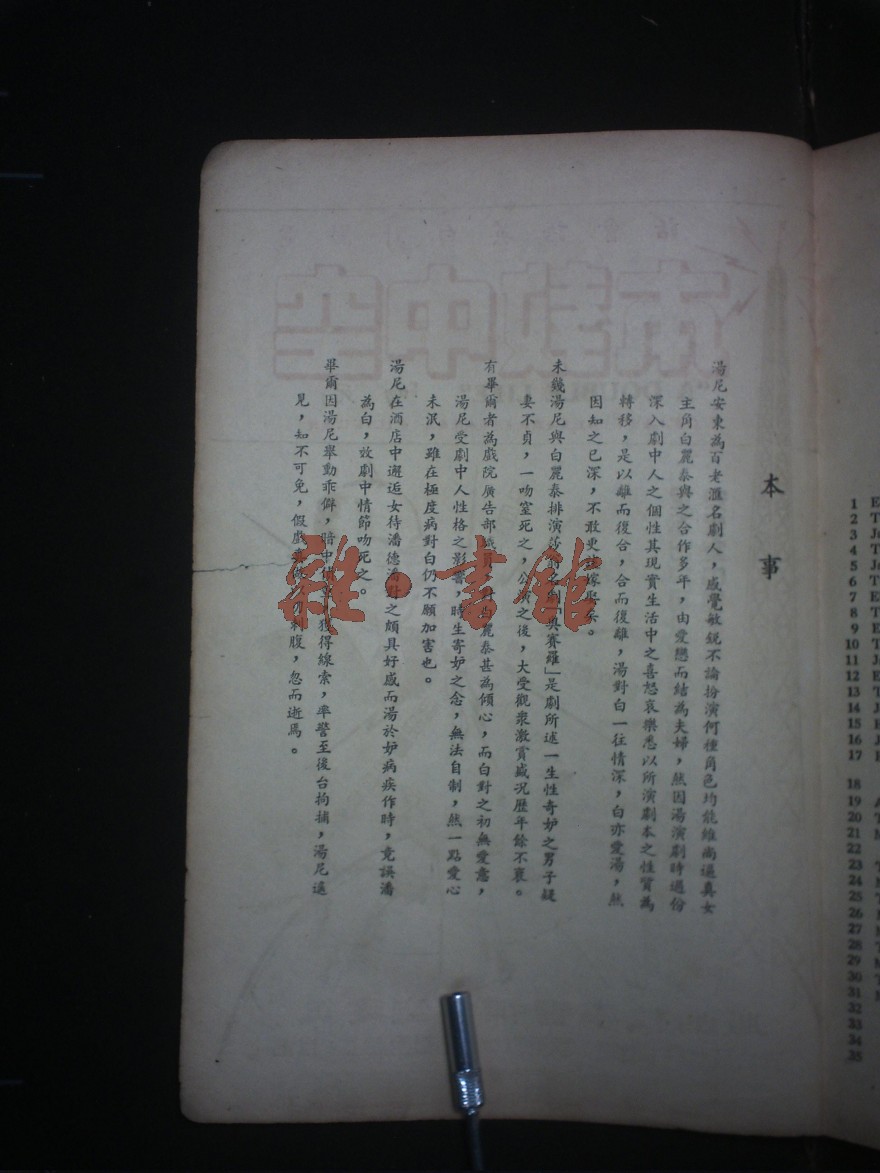 本事
湯尼安東為百老滙名劇人，感覺敏銳不論扮演何種角色均能維尚逼真女
主角白麗泰與之合作多年，由愛戀而結為夫婦，然因湯演劇時過份
深入劇中人之個性其現實生活中之喜怒哀樂悉以所演劇本之性質為
轉移，是以離而復合，合而復離，湯對白一往情深，白亦愛湯，然
因知之已深，不敢更
未幾湯尼與白麗泰排演 名劇「奧賽羅」是劇所述一生性奇妒之男子疑
妻不貞，一吻窒死之，公演之後，大受觀衆激賞盛况歷年餘不衰。
有畢爾者為戲院廣告部 對白麗泰甚為傾心，而白對之初無愛意，
湯尼受劇中人性格之影響，時生奇妒之念，無法自制，然一點愛心
未泯，雖在極度病 對白仍不願加害也。
湯尼在酒店中邂逅女待潘德 對之頗具好感而湯於妒病疾作時，竟誤潘
為白，效劇中情節吻死之。
畢爾因湯尼舉動乖僻，暗中 獲得線索，率警至後台拘捕，湯尼遥
見，知不可免，假戲 刺腹，忽而逝焉。
雜·書館
1
2
3
4
5
6
7
8
9
10
11
12
13
14
15
16
17
18
19
20
21
22
23
24
25
26
27
28
29
30
31
32
33
34
35